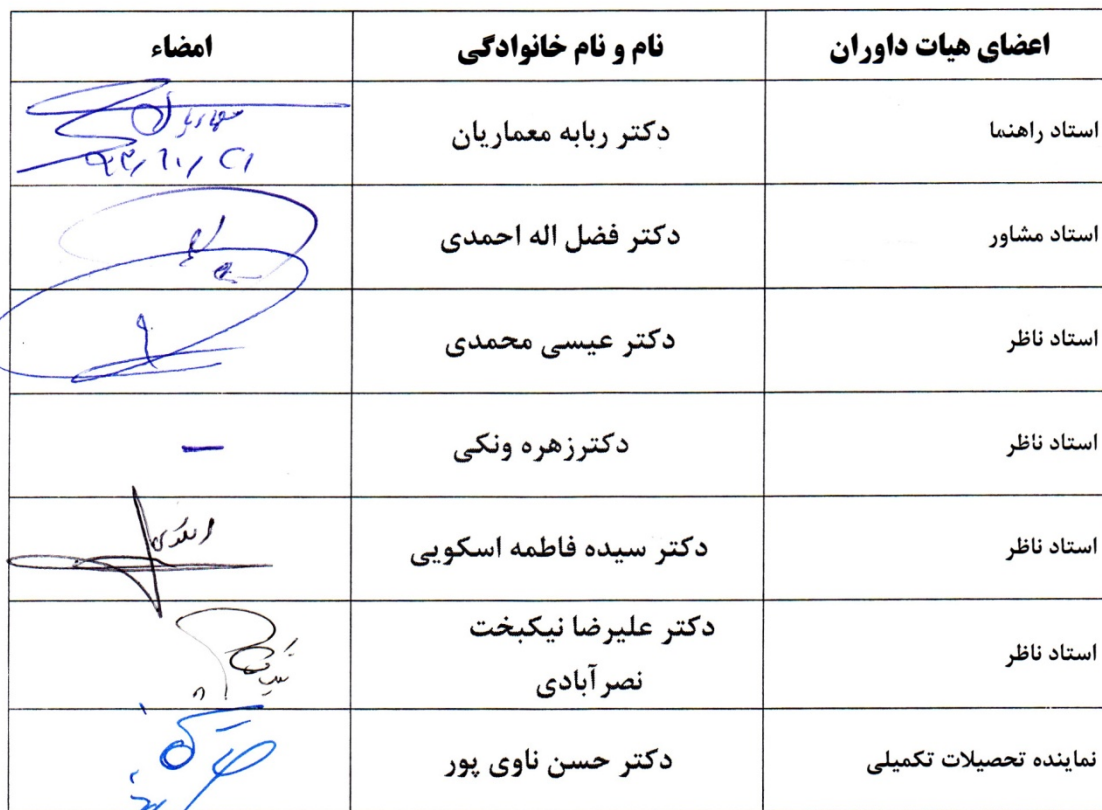 اعضای هیات داوران نام و نام خانوادگی امضاء
استاد راهنما دکتر ربابه معماریان
۹۳/۱۰/۲۱
استاد مشاور دکتر فضل اله احمدی
استاد ناظر دکتر عیسی محمدی
استاد ناظر دکترزهره ونکی –
استاد ناظر دکتر سیده فاطمه اسکویی
استاد ناظر دکتر علیرضا نیکبخت
نصرآبادی
نماینده تحصیلات تکمیلی دکتر حسن ناوی پور